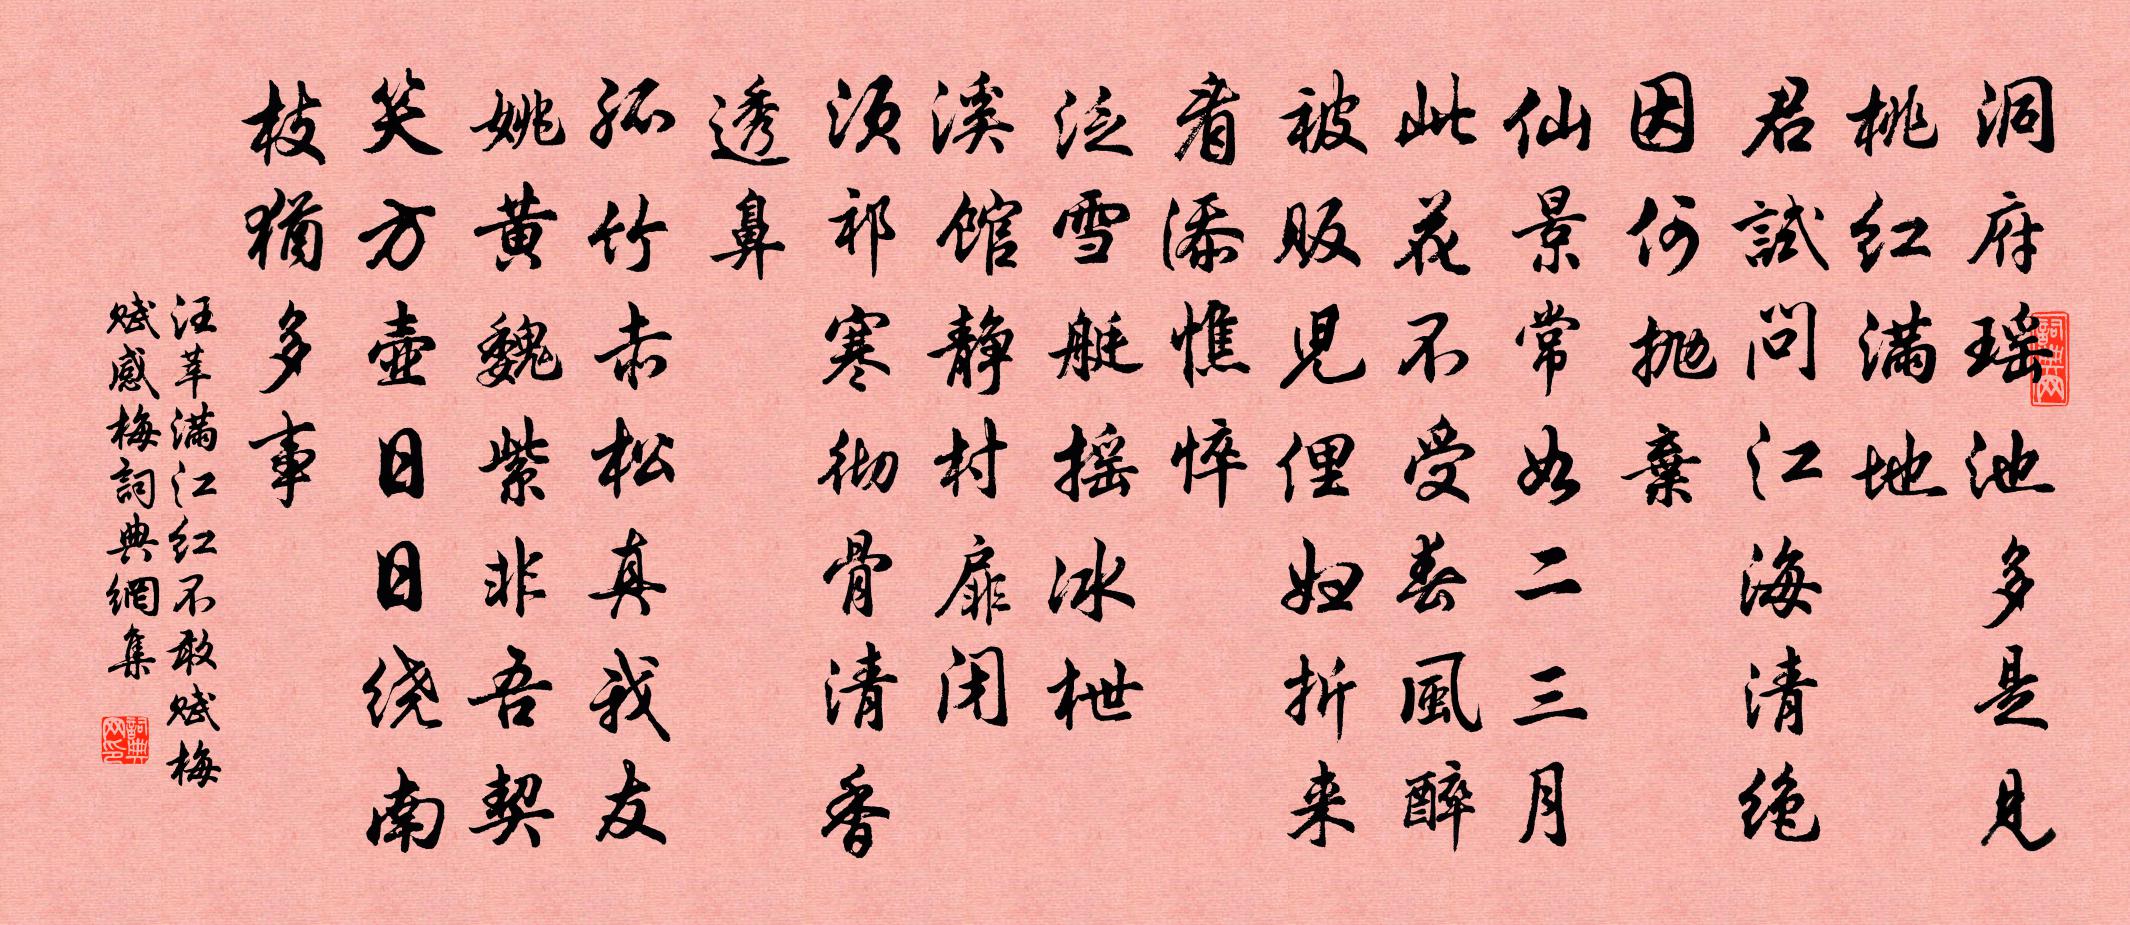 洞府瑶池多是见
桃红满地
君试问江海清绝
因何抛弃
仙景常如二三月
此花不受春風醉
被贩児俚妇折来
看添憔悴
泛雪艇摇冰枻
溪馆静村扉闭
须祁寒彻骨清香
透鼻
孤竹赤松真我友
姚黄魏紫非吾契
笑方壶日日绕南
枝猶多事
汪莘满江红不敢赋梅
赋感梅詞典網集